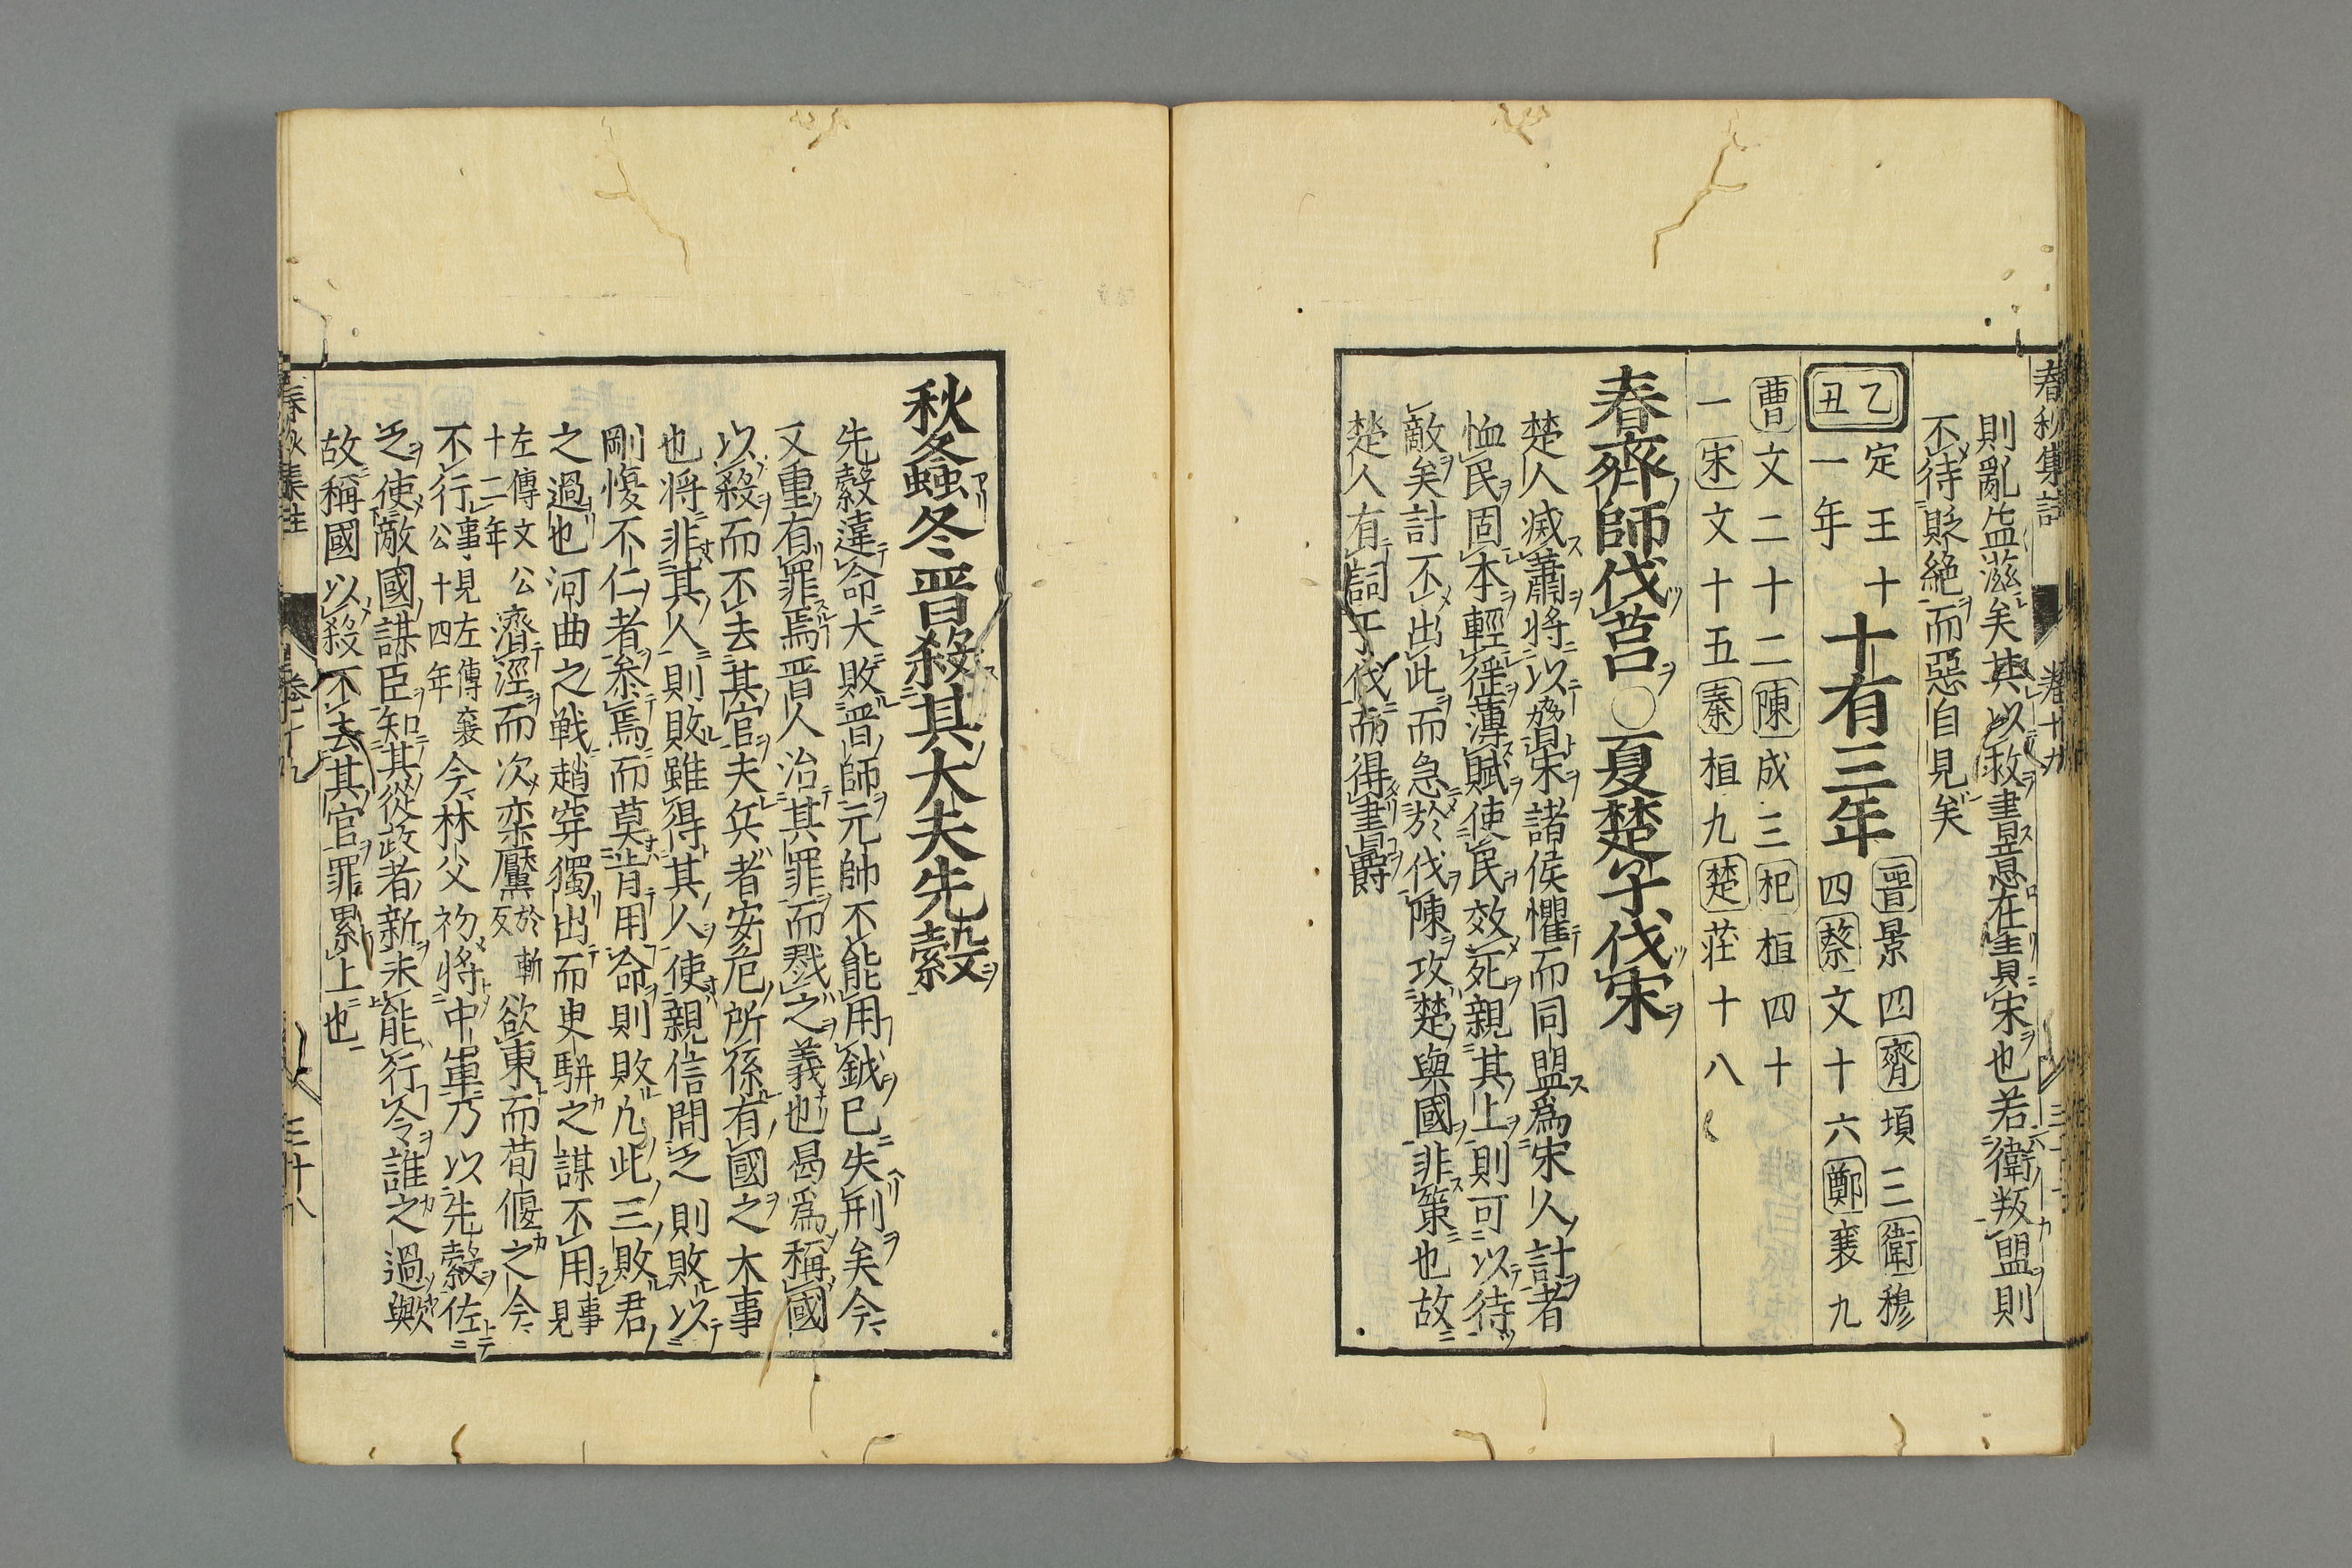 春秋集註 卷十九
則亂益滋矣其以救書意在責宋也若衛叛盟則
不待貶絕而惡自見矣
乙丑 定王十一年 十有三年 晉景四齊頃三衛穆四蔡文十六鄭襄九
曹文二十二陳成三杞桓四十
一宋文十五秦桓九楚莊十八
春齊師伐莒〇夏楚子伐宋
楚人滅蕭將以脅宋諸侯懼而同盟爲宋人計者
恤民固本輕徭薄賦使民效死親其上則可以待
敵矣計不出此而急於伐陳攻楚與國非策也故
楚人有詞于伐而得書爵
秋螽冬晉殺其大夫先縠
先縠違命大敗晉師元帥不能用鉞已失刑矣今
又重有罪焉晉人治其罪而戮之義也曷爲稱國
以殺而不去其官夫兵者安危所係有國之大事
也將非其人則敗雖得其人使親信間之則敗以
剛愎不仁者參焉而莫肯用命則敗凢此三敗君
之過也河曲之戰趙穿獨出而㬰駢之謀不用事見
左傳文公十二年濟涇而次欒黶於斬反欲東而荀偃之令
不行事見左傳襄公十四年今林父初將中軍乃以先縠佐
之使敵國謀臣知其從政者新未能行令誰之過歟
故稱國以殺不去其官罪累上也
春秋集註 卷十九 三十八